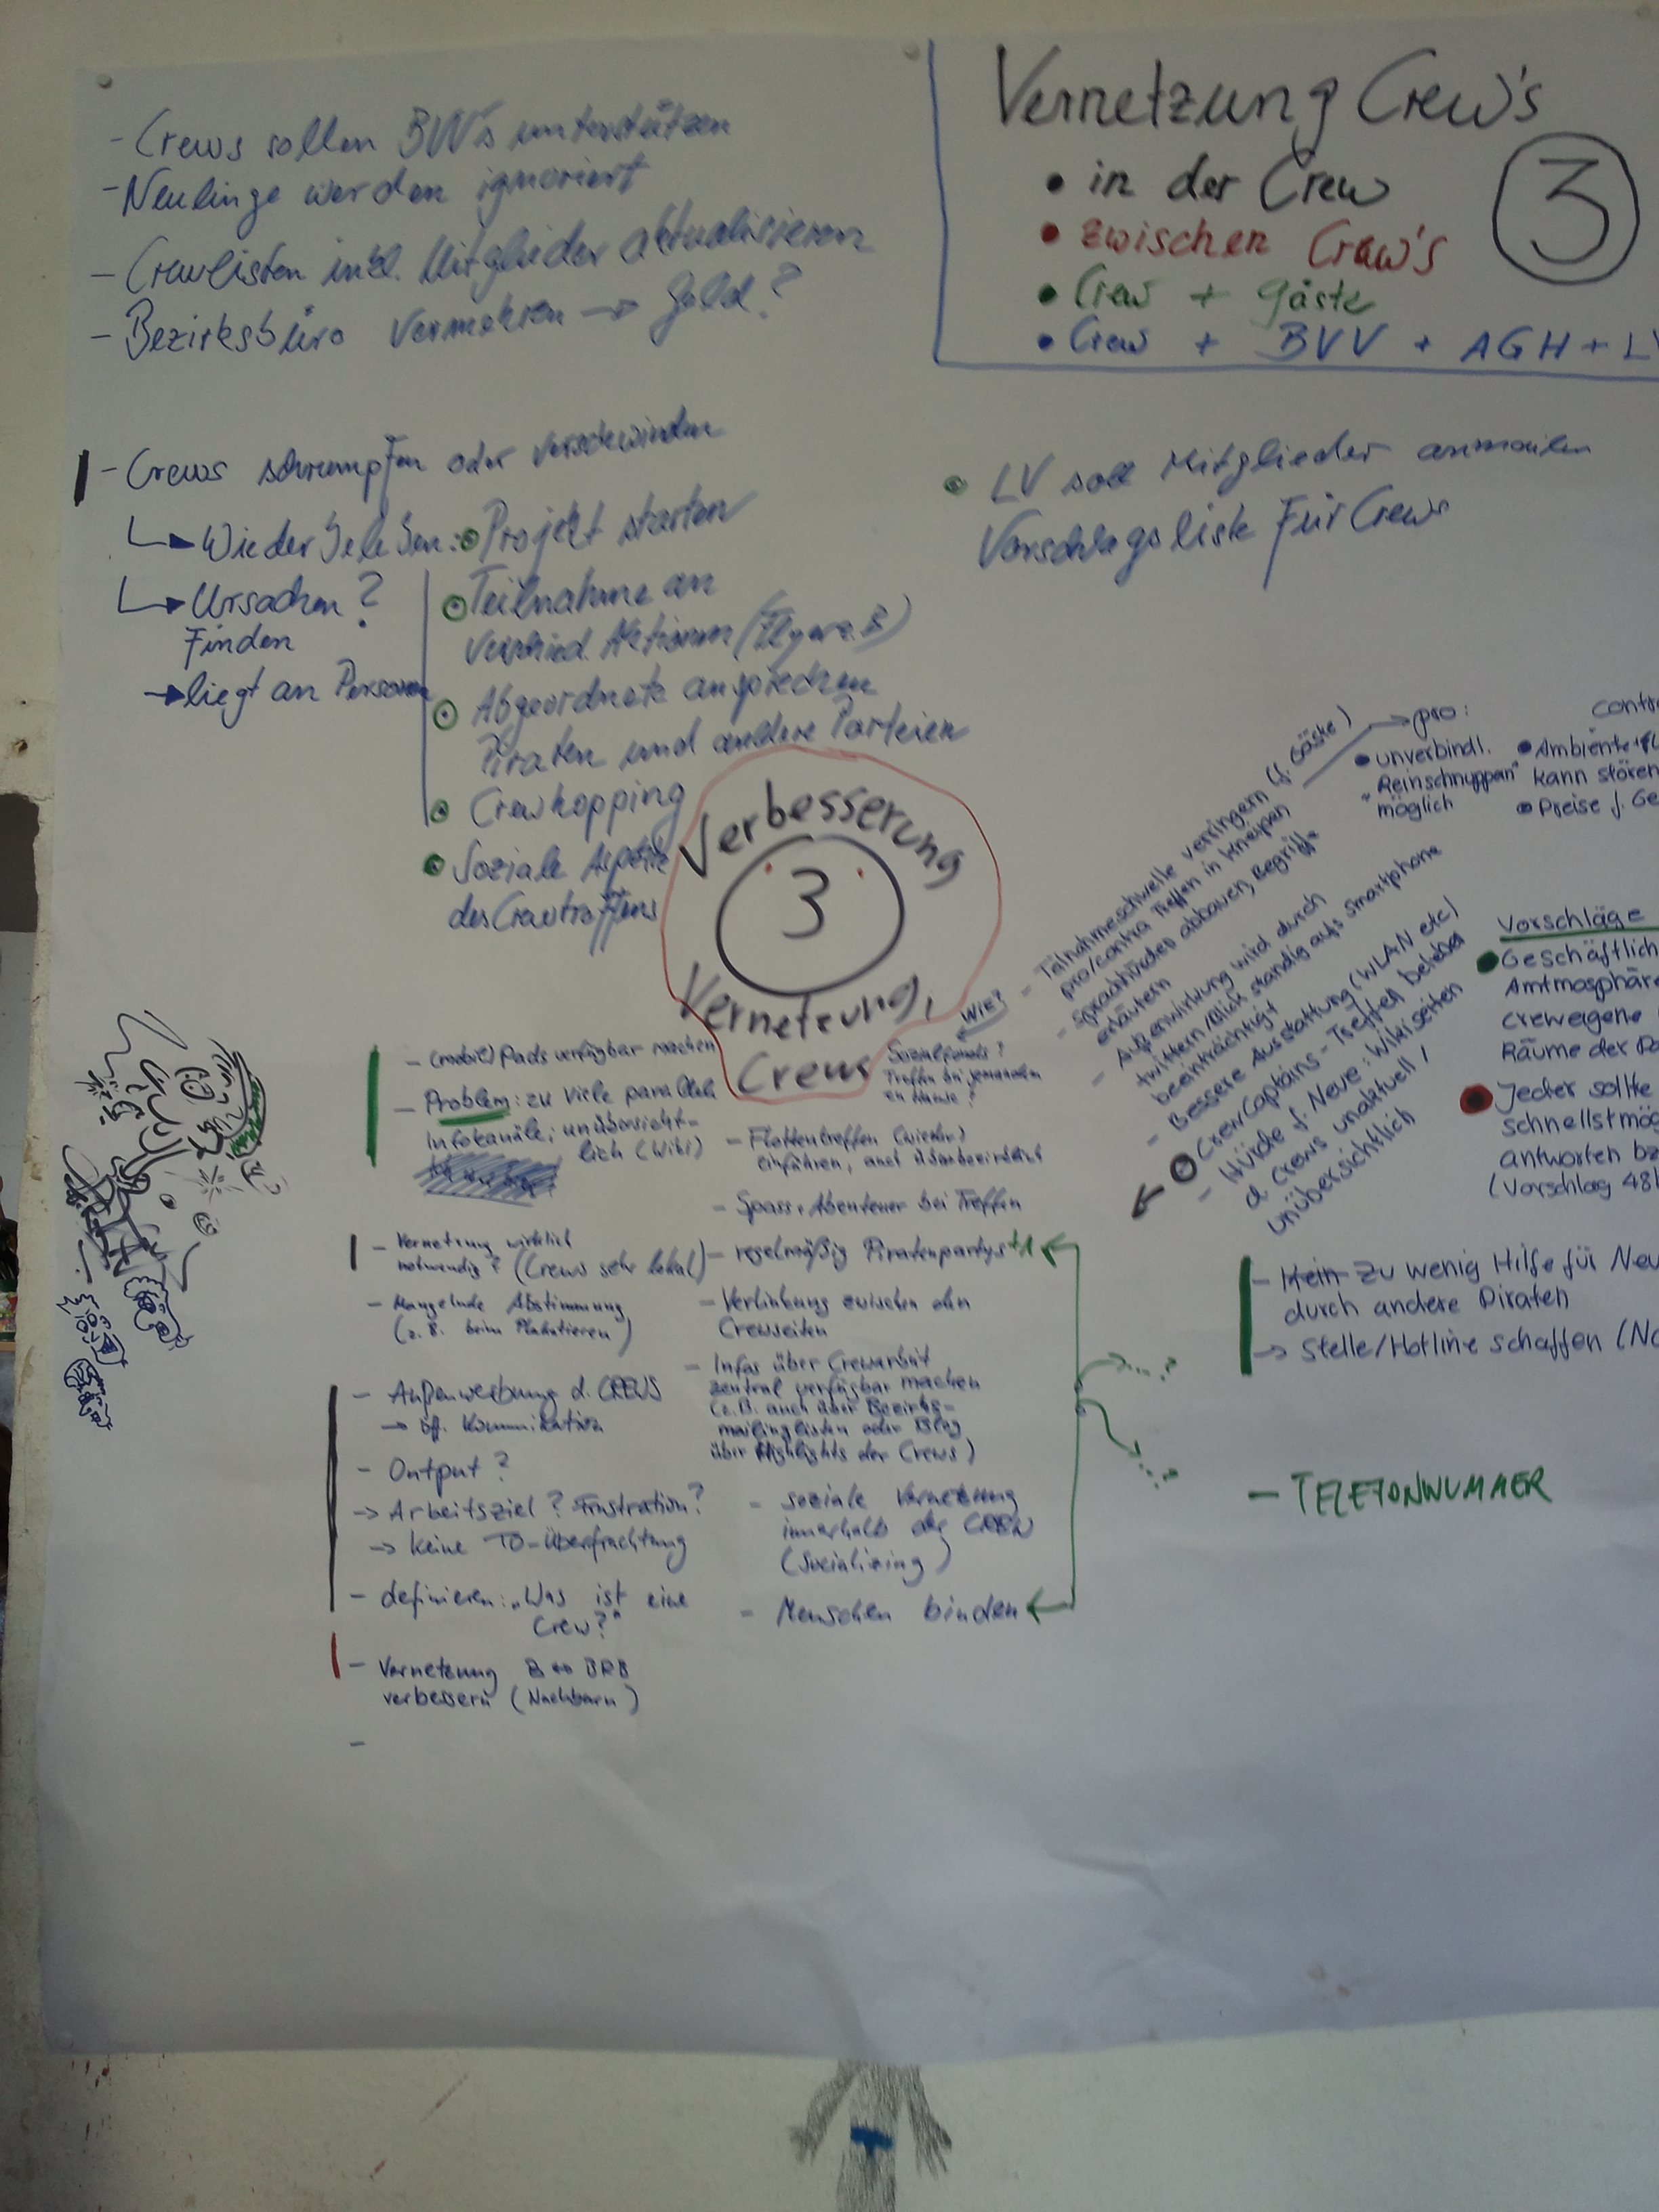 Vernetzung Crew's
3
• in der Crew
• zwischen Crew's
• Crew + Gäste
• Crew + BVV + AGH + LV
- Crews sollen BVV's unterstützen
- Neulinge werden ignoriert
- Crewlisten inkl. Mitglieder aktualisieren
- Bezirksbüro vermehren → Geld?
- Crews schrumpfen oder verschwinden
→ Wiederbeleben:
→ Ursachen?
Finden
→ liegt an Personen
Projekt starten
Teilnahme an
verschied. Aktionen
Abgeordnete ansprechen
Piraten und andere Parteien
Crewhopping
Soziale Aspekte
des Crewtreffens
LV soll Mitglieder anmailen
Vorschlagsliste für Crews
Verbesserung
3
Vernetzung,
Crews
WIE?
Treffen bei jemanden
zu Hause?
- (mobile) Pads verfügbar machen
- Problem: zu viele parallele
Infokanäle; unübersicht-
lich (Wiki)
- Vernetzung wirklich
notwendig? (Crews sehr lokal)
- Mangelnde Abstimmung
(z.B. beim Plakatieren)
- Außenwerbung d. CREWS
→ öff. Kommunikation
- Output?
→ Arbeitsziel? Frustration?
→ keine TO-Überfrachtung
- definieren: „Was ist eine
Crew?"
- Vernetzung B ↔ BRB
verbessern (Nachbarn)
-
- Flottentreffen (wieder)
einführen, auch überbezirklich
- Spass + Abenteuer bei Treffen
- regelmäßig Piratenpartys +1
- Verlinkung zwischen den
Crewseiten
- Infos über Crewarbeit
zentral verfügbar machen
(z.B. auch über Bezirks-
mailinglisten oder Blog
über Highlights der Crews)
- soziale Vernetzung
innerhalb der CREW
(Socializing)
- Menschen binden
- Teilnahmeschwelle verringern (f. Gäste)
pro/contra Treffen in Kneipen
- Sprachhürden abbauen, Begriffe
erläutern
- Außenwirkung wird durch
twittern/Blick ständig aufs smartphone
beeinträchtigt
- Bessere Ausstattung (WLAN etc)
CrewCaptains-Treffen beleben
- Hürde f. Neue: Wikiseiten
d. Crews unaktuell /
unübersichtlich
→ pro:
• unverbindl.
"Reinschnuppern"
möglich
contra
• Ambiente
kann stören
• Preise f. Ge
Vorschläge
• Geschäftlich
Atmosphäre
creweigene
Räume der Pa
• Jeder sollte
schnellstmög
antworten bz
(Vorschlag 48
- Kein zu wenig Hilfe für Neu
durch andere Piraten
→ Stelle/Hotline schaffen (No
- TELEFONNUMMER